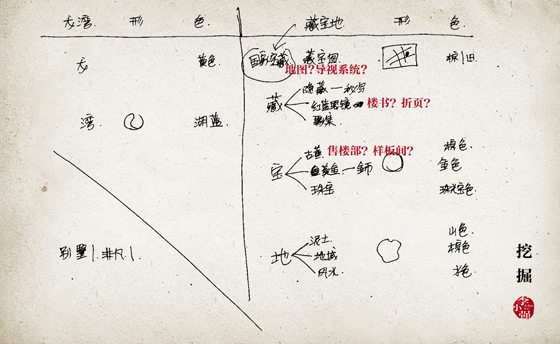 友湾. 形 色. 藏宝地 形 色.
友 黄色. 国家宝藏 藏宝图 棕旧
地图?导视系统?
隐藏一秘密
藏 红蓝眼镜 楼书?折页?
湾. 湖蓝.
古董 售楼部?样板间? 棕色.
宝 黄金 金色
珠宝 珠宝色.
泥土 山色.
别墅 非凡 地 地域 棕色
风水 土色.
挖掘